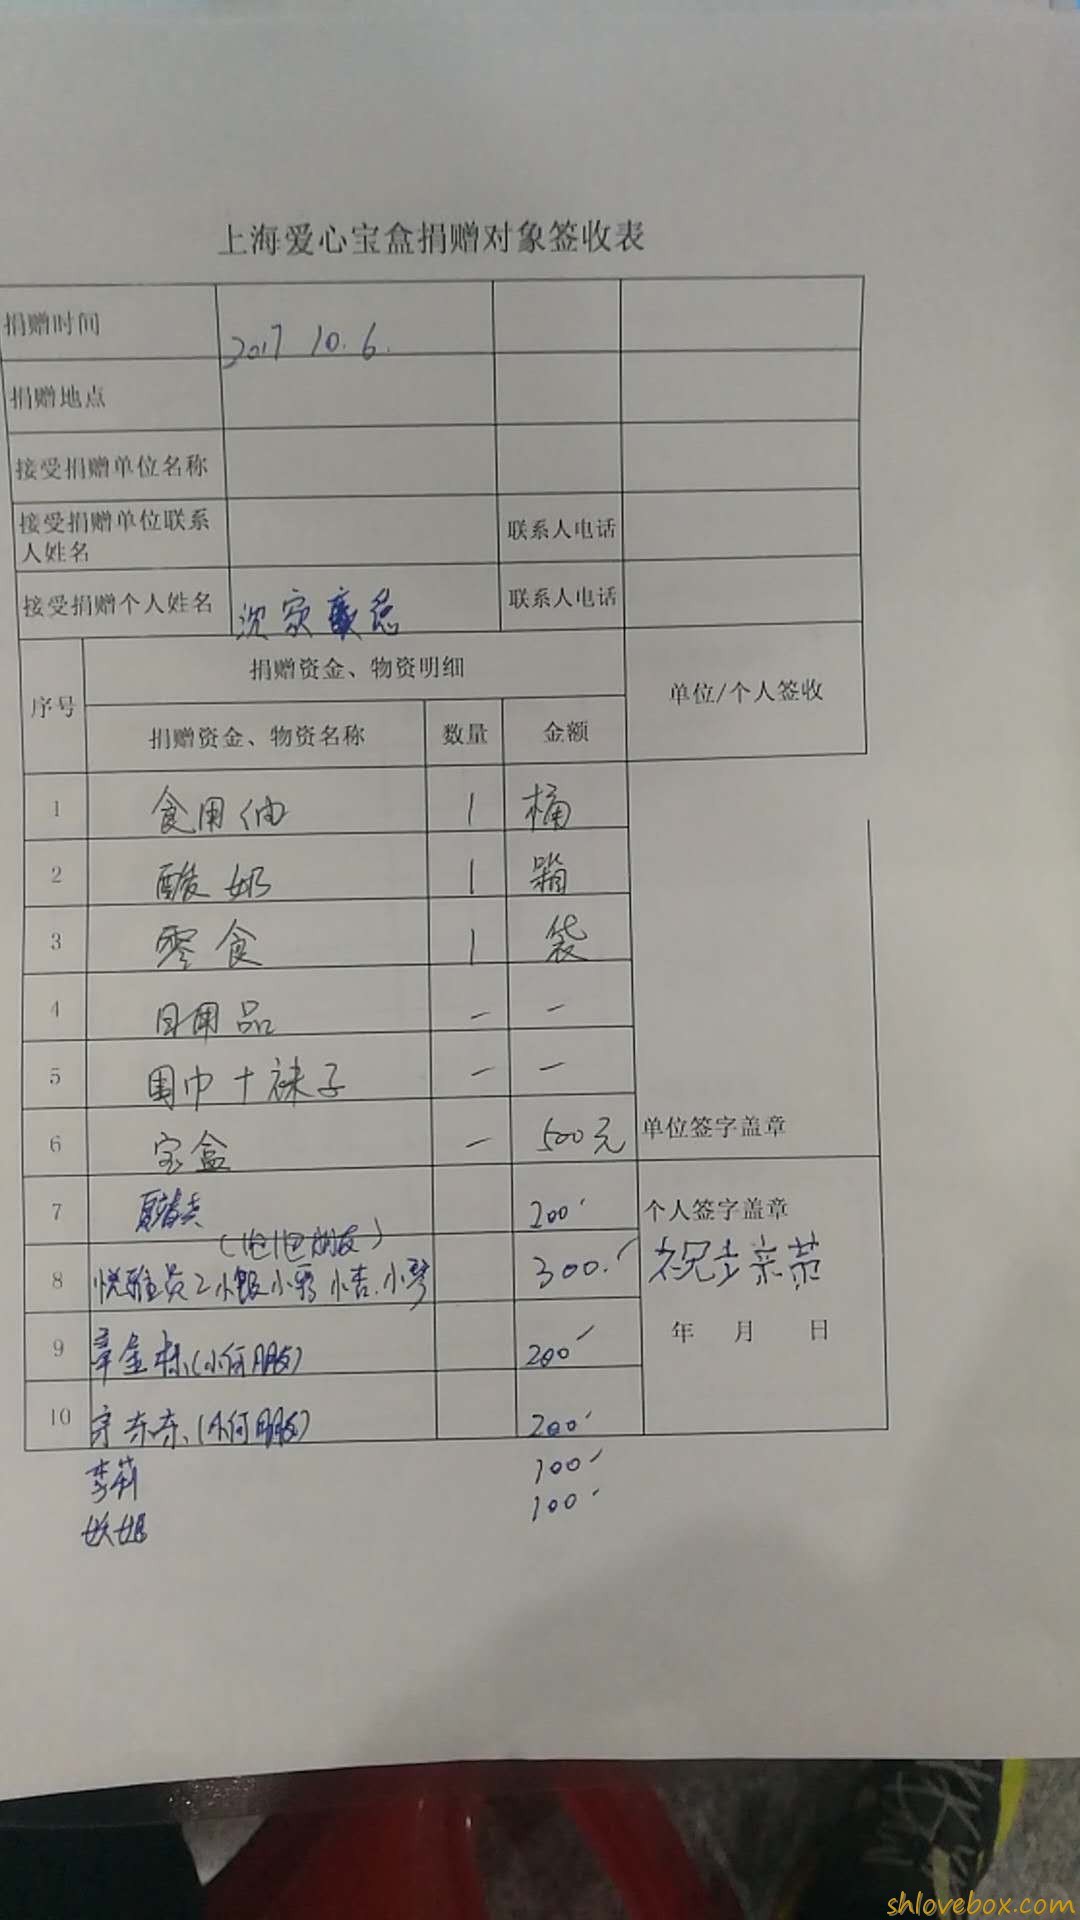 上海爱心宝盒捐赠对象签收表
捐赠时间 2017 10.6.
捐赠地点
接受捐赠单位名称
接受捐赠单位联系人姓名 联系人电话
接受捐赠个人姓名 沈家 联系人电话
序号 捐赠资金、物资明细 单位/个人签收
捐赠资金、物资名称 数量 金额
1 食用油 1 桶
2 酸奶 1 箱
3 零食 1 袋
4 日用品 一 一
5 围巾十袜子 一 一
6 宝盒 一 500元 单位签字盖章
7 200 个人签字盖章
(包包朋友)
8 悦雅员工小银 小莉 小杏.小琴 300.
年 月 日
9 章金林(小何朋友) 200
10 宋东东(小何朋友) 200
李莉 100
妖姐 100
shlovebox.com